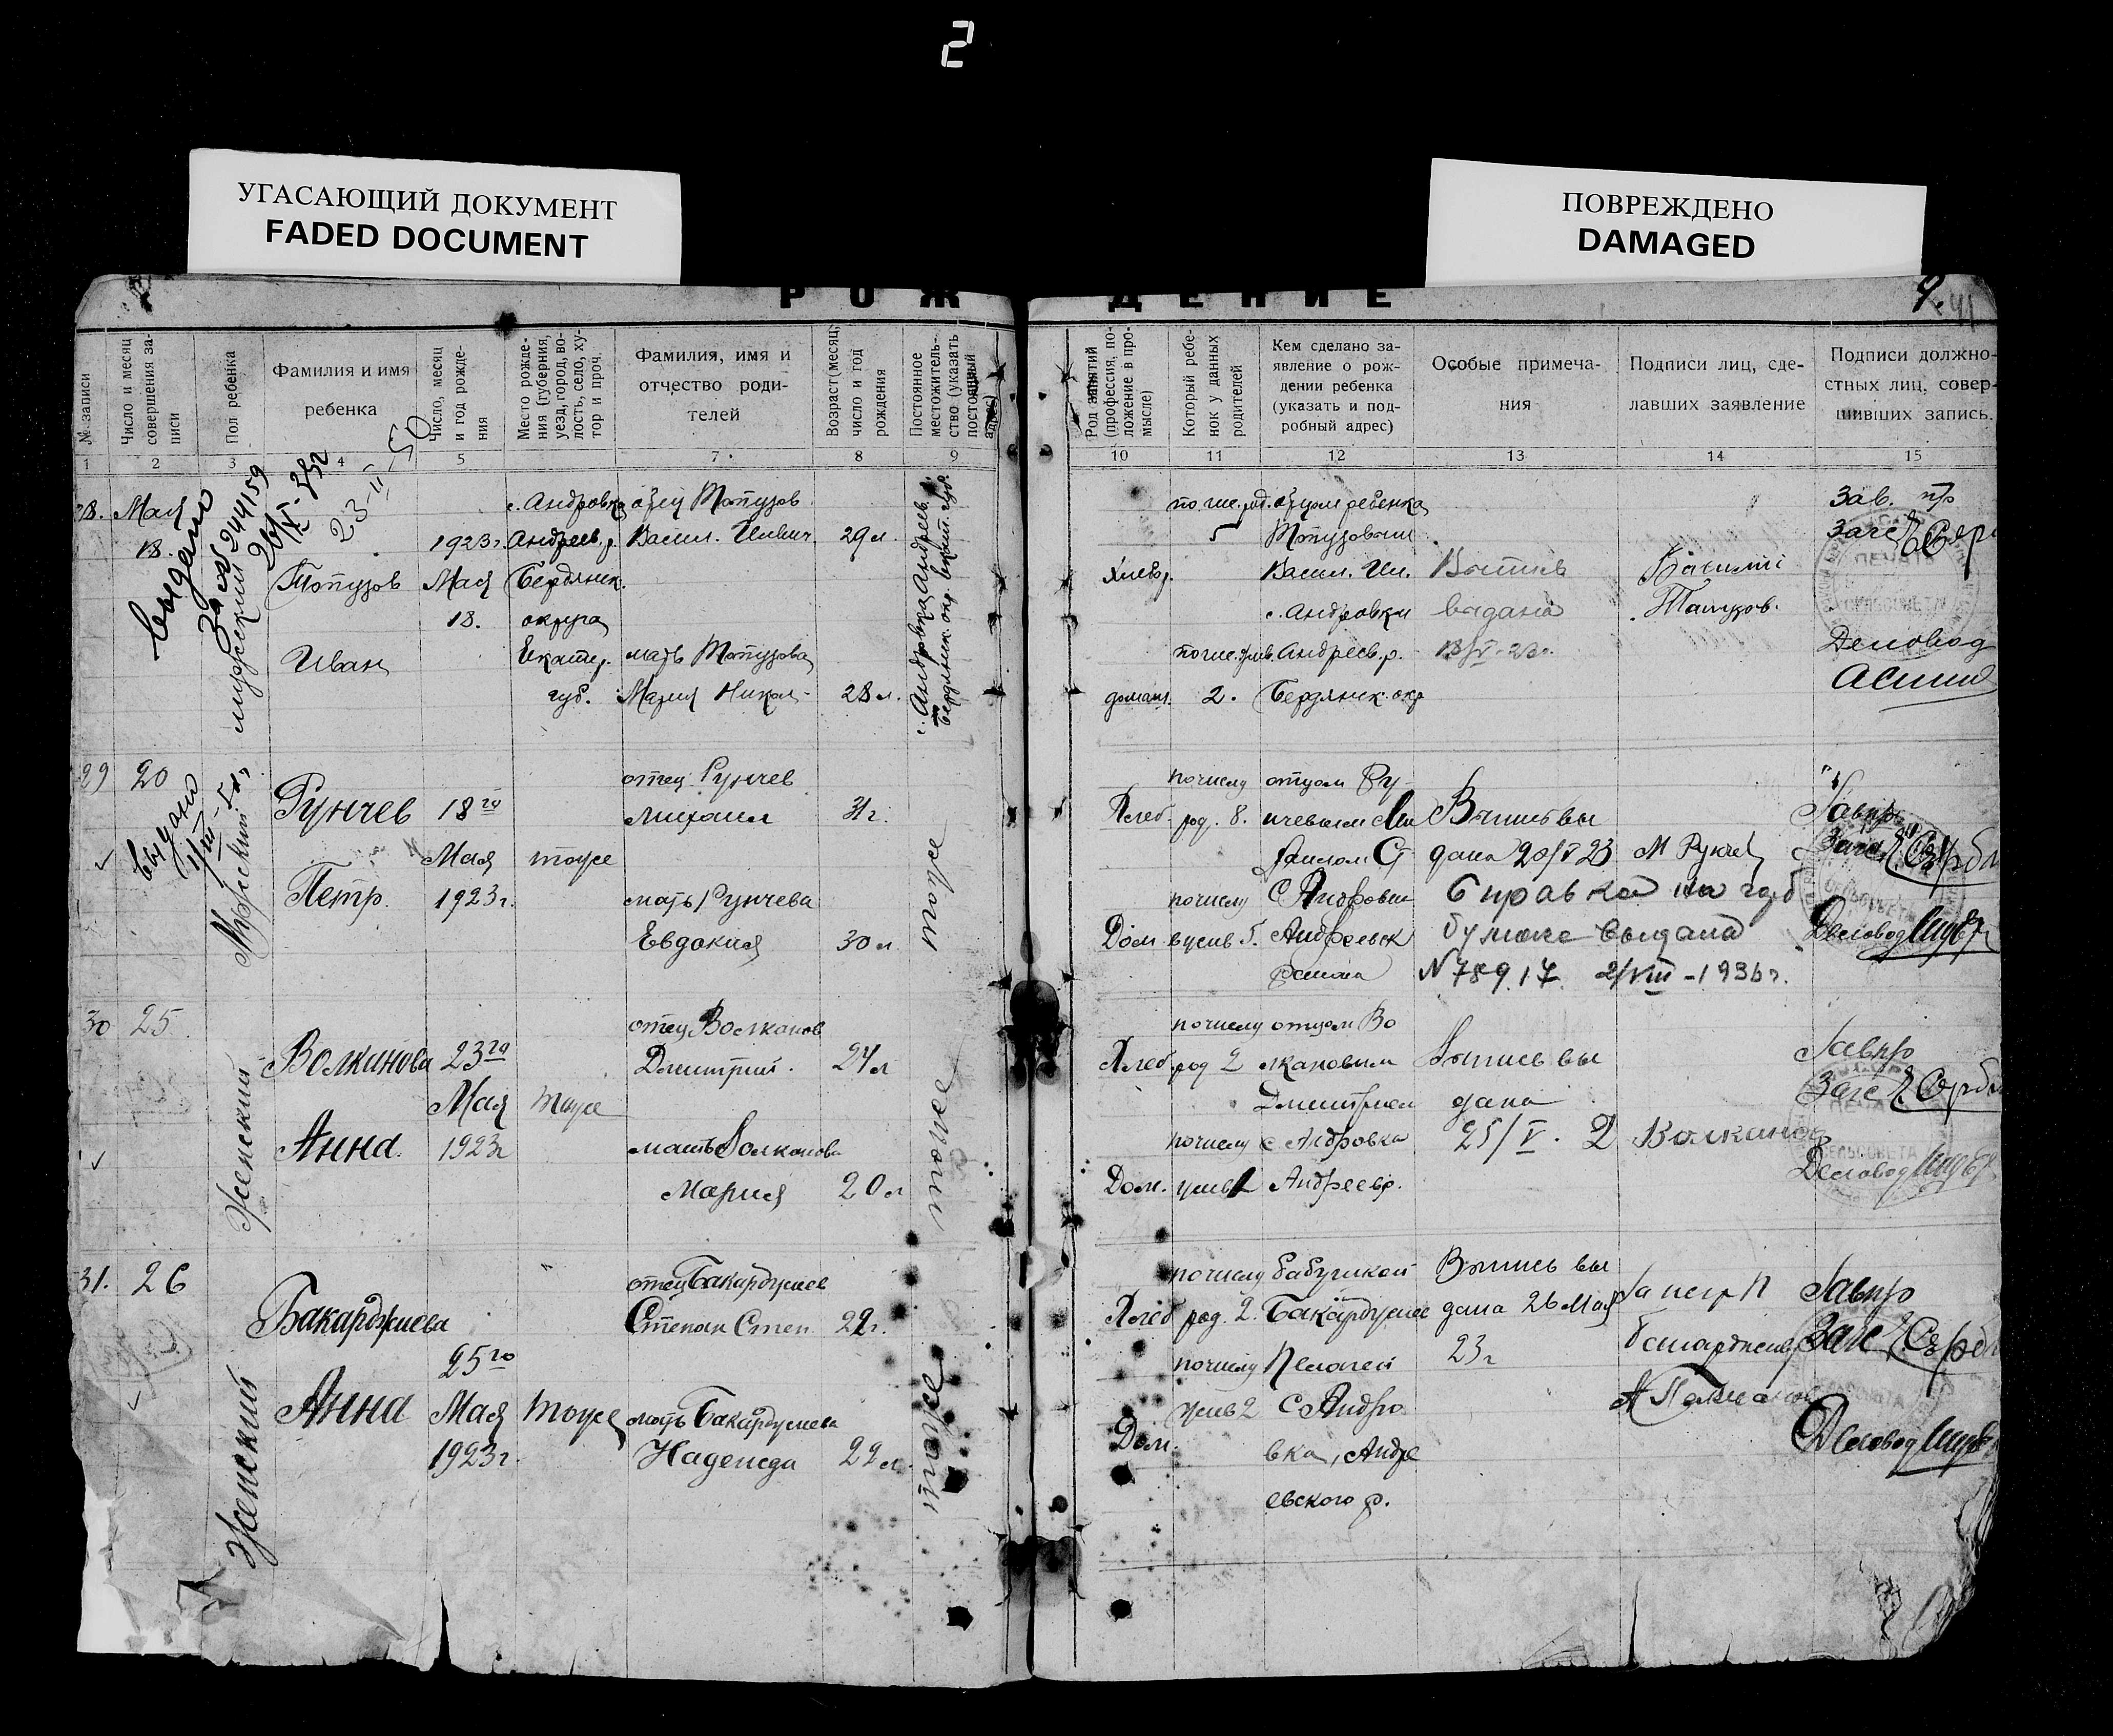 2
УГАСАЮЩИЙ ДОКУМЕНТ
FADED DOCUMENT
ПОВРЕЖДЕНО
DAMAGED
РОЖДЕНИЕ
9.
41
№ записи
Число и месяц совершения записи
Пол ребенка
Фамилия и имя
ребенка
Число, месяц
и год рожде-
ния
Место рожде-
ния (губерния,
уезд, город, во-
лость, село, ху-
тор и проч.
Фамилия, имя и
отчество роди-
телей
Возраст (месяц,
число и год
рождения
Постоянное
местожитель-
ство (указать
постоянный
адрес)
Род занятий
(профессия, по-
ложение в про-
мысле)
Который ребе-
нок у данных
родителей
Кем сделано за-
явление о рож-
дении ребенка
(указать и под-
робный адрес)
Особые примеча-
ния
Подписи лиц, сде-
лавших заявление
Подписи должно-
стных лиц, совер-
шивших запись.
1 2 3 4 5 7 8 9 10 11 12 13 14 15
28. Мая
18.
выдано
23-II-50
мужский
Топузов
Иван
1923г.
Мая
18.
с. Андровка
Андреев. р.
Бердянск.
округа
Екатер.
губ.
отец Топузов
Васил. Ильич 29 л.
мать Топузова
Мария Никол- 28 л.
с. Андровка, Андреев.
Бердянск. окр. Екат. губ.
Хлебор.
домаш.
5
2.
отцом ребенка
Топузовым
Васил. Ил.
с. Андровки
Андреев. р.
Бердянск. окр
выдана
Топузов.
Зав. п/р
Загс
Деловод
29 20
выдано
Мужский
Рунчев
Петр.
18го
Мая
1923г.
тоже
отец Рунчев
Михаил 31г.
мать Рунчева
Евдокия 30 л
тоже
Хлеб.
Дом.
по числу
род. 8.
по числу
в жив 5.
отцом Ру-
нчевым Ми
с Андровки
Андреевск
района
Выпись вы
дана 20/V 23
Справка на гер
бумаге выдана
N 78917 2/VIII-1936г.
М Рунчев
Завпр
Загс
Деловод
30 25
Женский
Волканова
Анна.
23го
Мая
1923г
тоже
отец Волканов
Дмитрий. 24 л
мать Волканова
Мария 20 л
тоже
Хлеб.
Дом.
по числу
род 2
по числу
жив 2
отцом Во
лкановым
Дмитрием
с Андровка
Андреев р.
Выпись вы
дана
25/V.
Д Волканов
Завпр
Загс
Деловод
31. 26
Женский
Бакарджиева
Анна
25го
Мая
1923г.
тоже
отец Бакарджиев
Степан Степ. 22г.
мать Бакарджиева
Надежда 22 л.
тоже
Хлеб
Дом.
по числу
род. 2.
по числу
жив 2
бабушкой
Бакарджие
Пелагей
с Андро
вка, Андре
евского р.
Выпись вы
дана 26 Мая
23г
За негр П
Завпр
Загс
Деловод